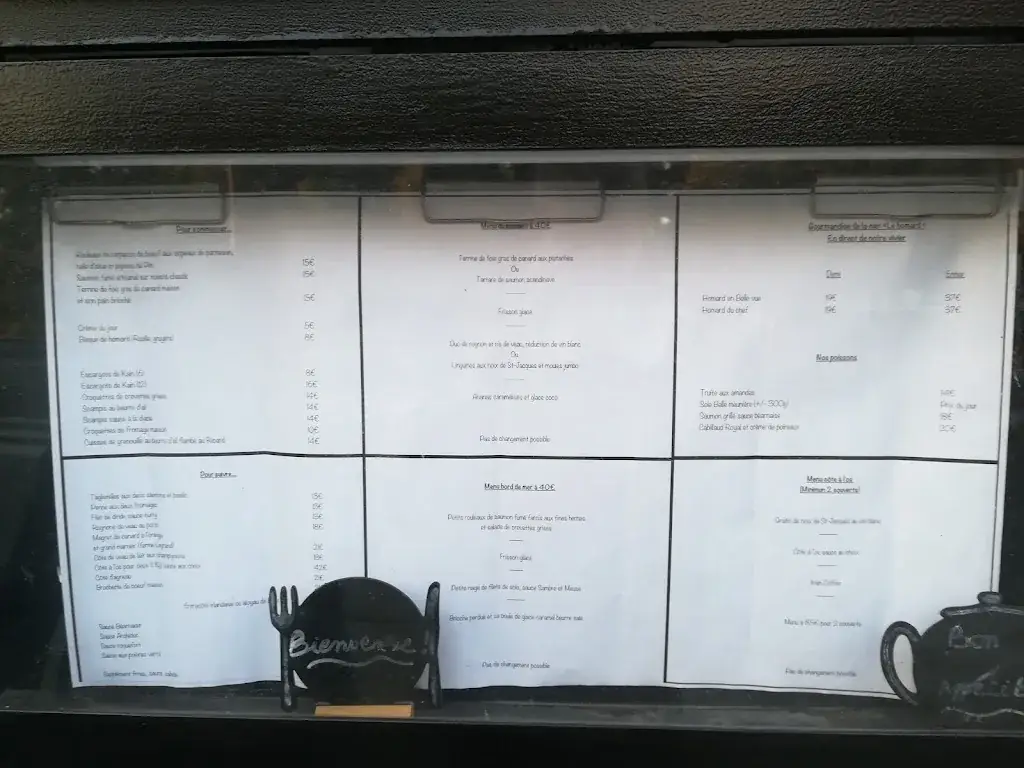 Pour commencer...
15€
Saumon fumé artisanal sur toasts chauds 15€
Terrine de foie gras de canard maison
et son pain brioché 15€
Crème du jour 5€
Bisque de homard (Rouille, gruyère) 8€
Escargots de Karin (6) 8€
Escargots de Karin (12) 16€
Croquettes de crevettes grises 14€
Scampis au beurre d'ail 14€
Scampis sauce à la diable 14€
Croquettes de fromage maison 12€
Cuisses de grenouille au beurre d'ail flambé au Ricard 14€
Pour suivre...
Tagliatelles aux deux saumons et basilic 15€
Penne aux deux fromages 15€
Filet de dinde, sauce curry 15€
Rognons de veau au porto 18€
Magret de canard à l'orange
et grand marnier 21€
Côte de veau de lait aux champignons 19€
42€
Côte d'agneau 21€
Brochette de boeuf maison
Sauce Béarnaise
Sauce Archiduc
Sauce roquefort
Sauce aux poivres verts
Supplément frites, sauce, salade
Menu à 40€
Terrine de foie gras de canard aux pistaches
Ou
Tartare de saumon scandinave
Frisson glacé
Duo de rognon et ris de veau, réduction de vin blanc
Ou
Linguines aux noix de St-Jacques et moules jumbo
Ananas caramélisés et glace coco
Pas de changement possible
Menu bord de mer à 40€
Petits rouleaux de saumon fumé farcis aux fines herbes
et salade de crevettes grises
Frisson glacé
Petite nage de filets de sole, sauce Sambre et Meuse
Brioche perdue et sa boule de glace caramel beurre salé
Pas de changement possible
Gourmandise de la mer «Le homard»
En direct de notre vivier
Demi Entier
Homard en Belle vue 19€ 37€
Homard du chef 19€ 37€
Nos poissons
Truite aux amandes 14€
Sole Belle meunière (+/- 500g) Prix du jour
Saumon grillé sauce béarnaise 18€
Cabillaud Royal et crème de poireaux 20€
Menu côte à l'os
(Minimum 2 couverts)
Gratin de noix de St-Jacques au vin blanc
Côte à l'os sauce au choix
Irish Coffee
Menu à 65€ pour 2 couverts
Pas de changement possible
Bienvenue !
Bon
Appétit